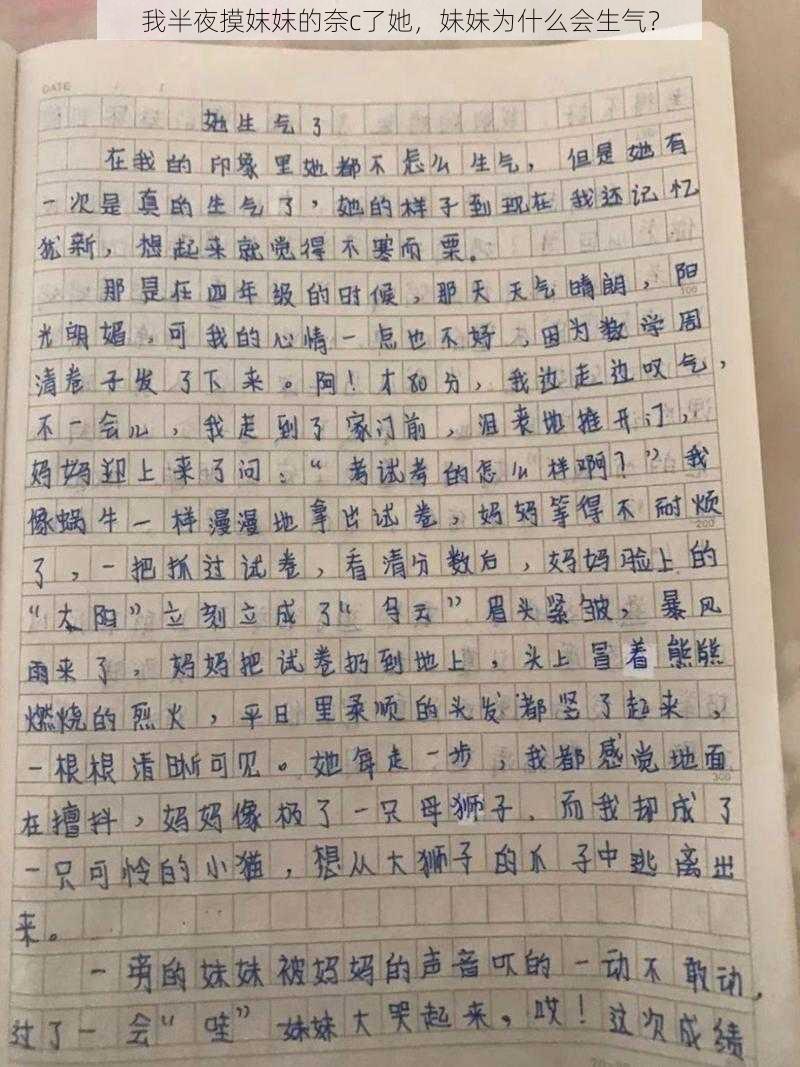 我半夜摸妹妹的奈c了她，妹妹为什么会生气？
DATE
她生气了
在我的印象里她都不怎么生气，但是她有
一次是真的生气了，她的样子到现在我还记忆
犹新，想起来就觉得不寒而栗。
那是在四年级的时候，那天天气晴朗，阳
100
光明媚，可我的心情一点也不好，因为数学周
清卷子发了下来。阿！才80分，我边走边叹气，
不一会儿，我走到了家门前，沮丧地推开门，
妈妈迎上来了问：“考试考的怎么样啊？”我
像蜗牛一样漫漫地拿出试卷，妈妈等得不耐烦
200
了，一把抓过试卷，看清分数后，妈妈脸上的
“太阳”立刻立成了“乌云”眉头紧皱，暴风
雨来了，妈妈把试卷扔到地上，头上冒着熊熊
燃烧的烈火，平日里柔顺的头发都竖了起来，
一根根清晰可见。她每走一步，我都感觉地面
300
在擅抖，妈妈像极了一只母狮子，而我却成了
一只可怜的小猫，想从大狮子的爪子中逃离出
来。
一旁的妹妹被妈妈的声音吓的一动不敢动，
过了一会“哇”妹妹大哭起来，哎！这次成绩